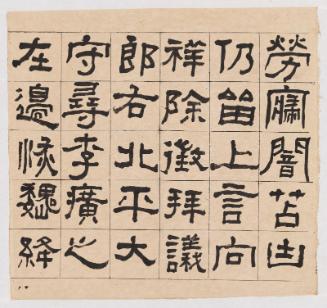 勞闇苫凷
仍留上言向
祥除徵拜議
郎右北平大
守尋李廣之
在邊恢魏絳